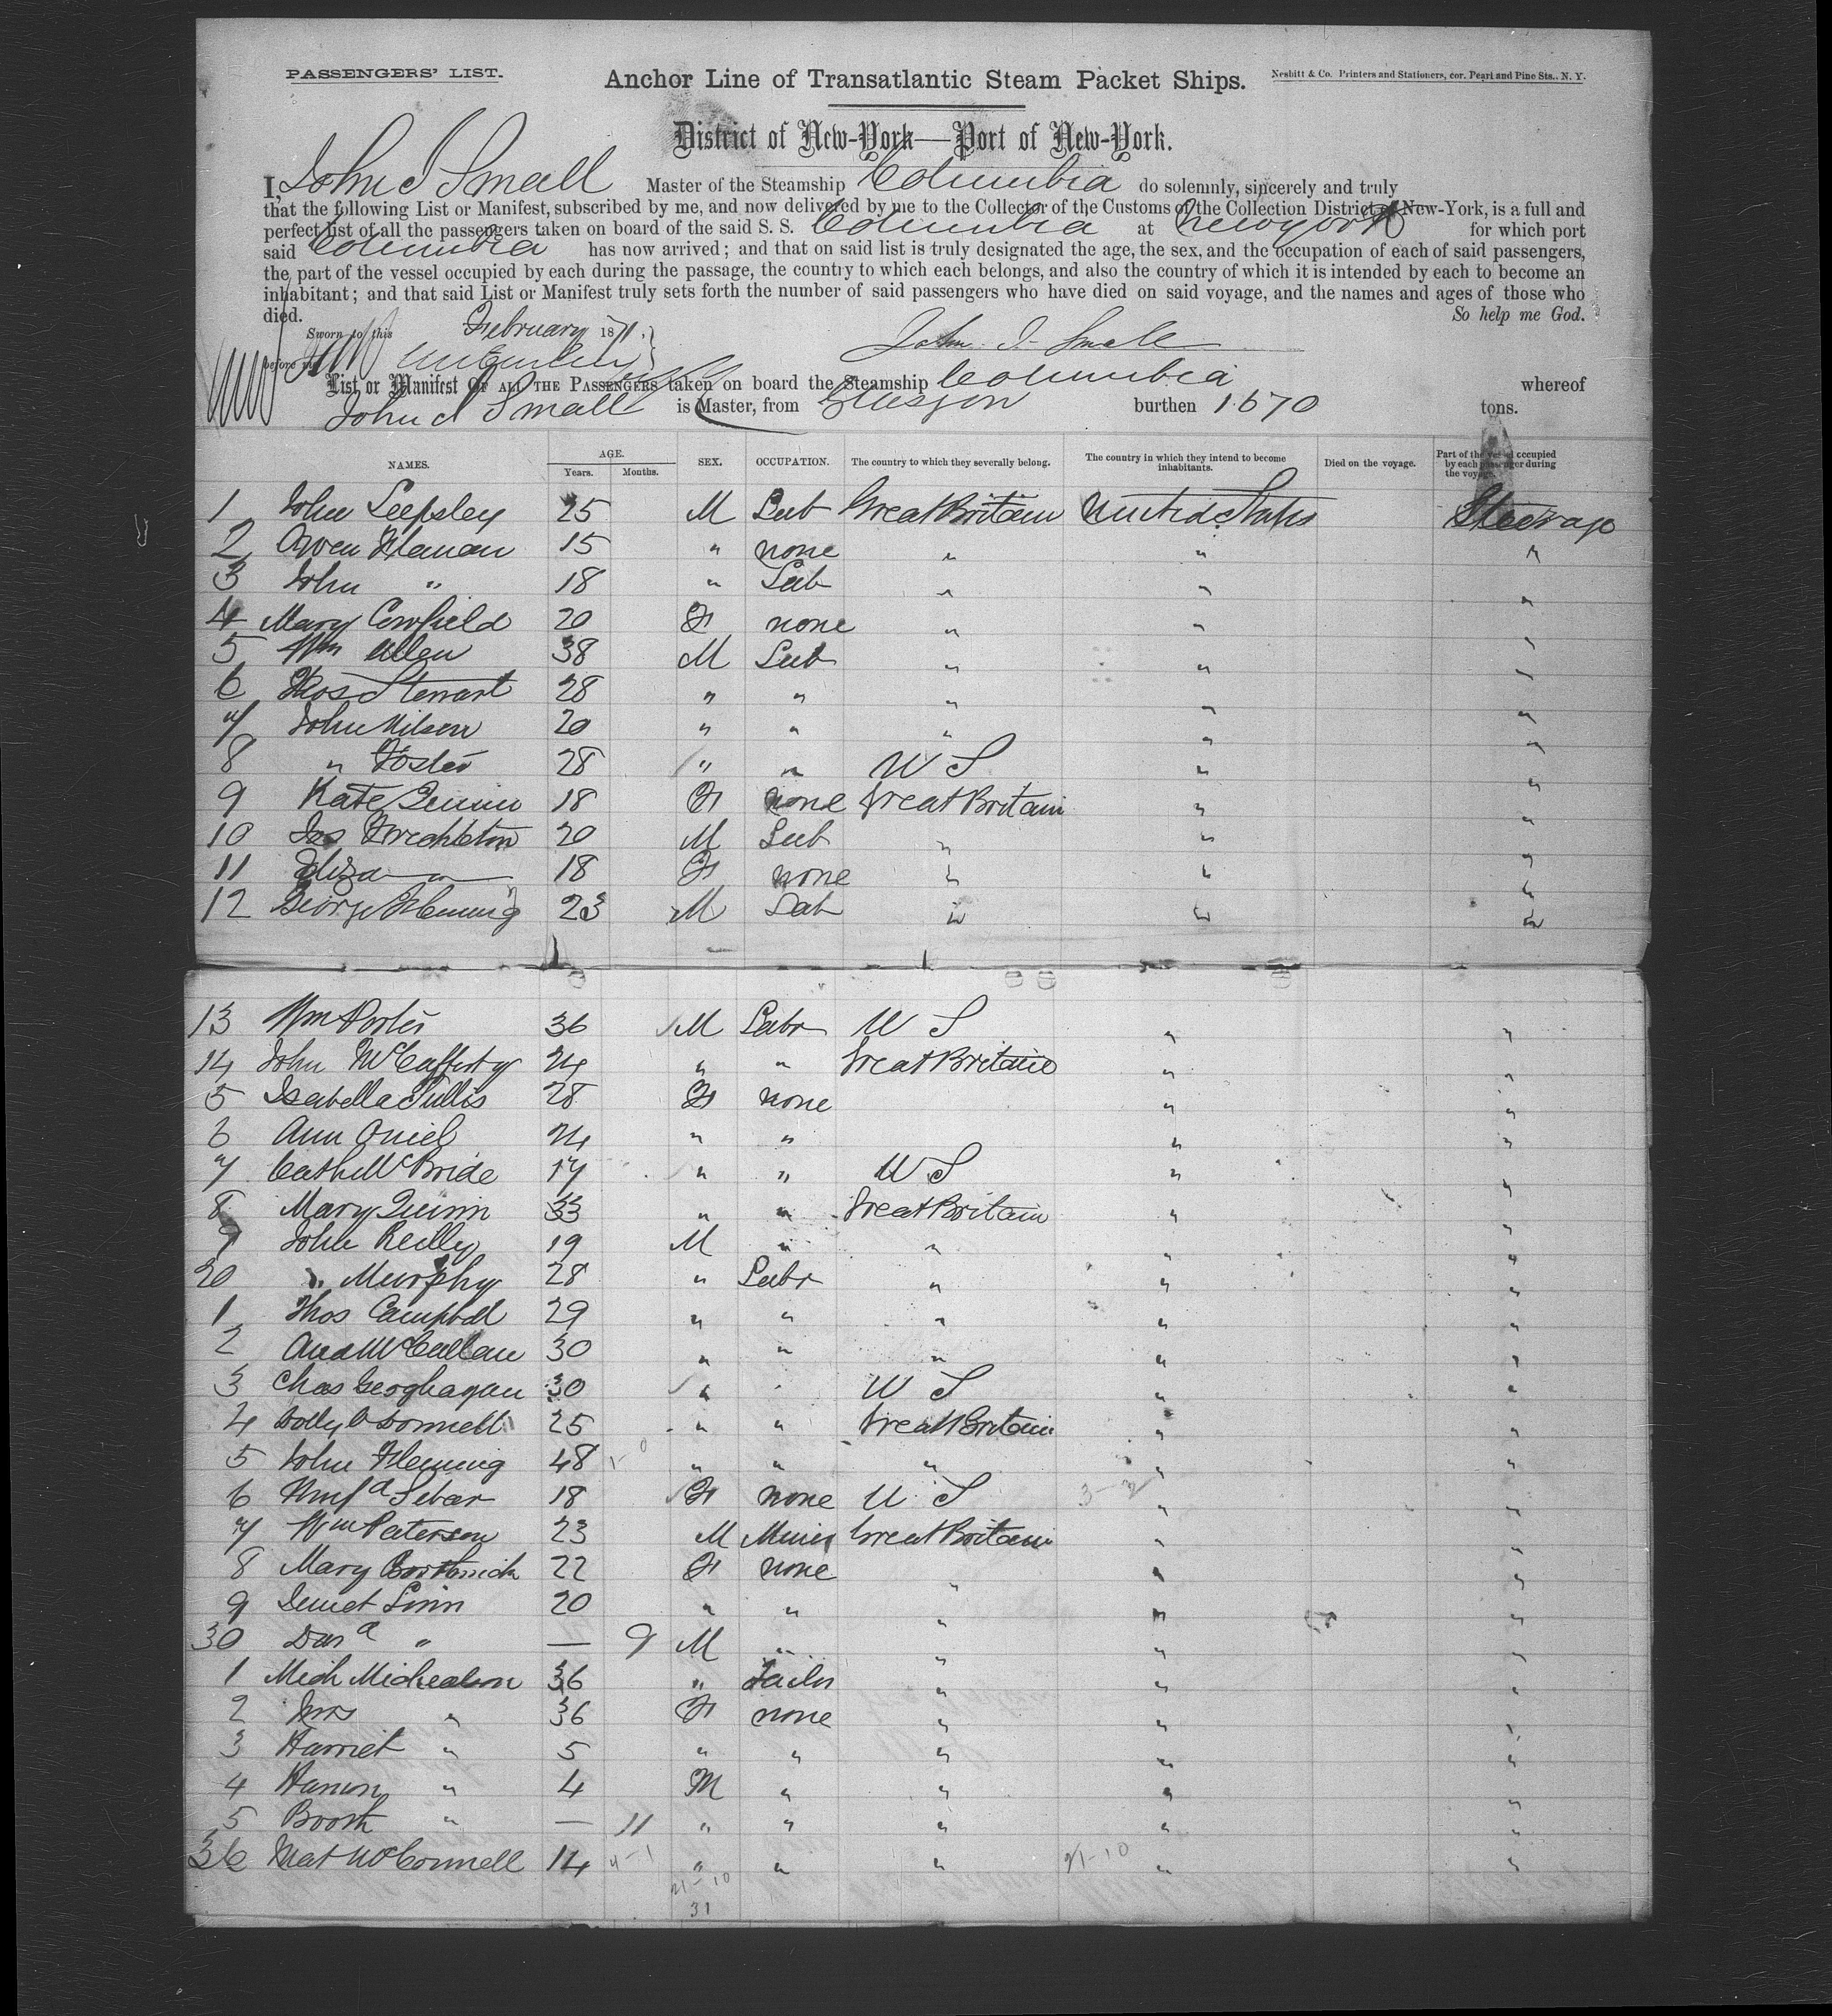 PASSENGERS' LIST.
Anchor Line of Transatlantic Steam Packet Ships.
Nesbitt & Co. Printers and Stationers, cor. Pearl and Pine Sts., N. Y.
District of New-York—Port of New-York.
I, John S Small Master of the Steamship Columbia do solemnly, sincerely and truly
that the following List or Manifest, subscribed by me, and now delivered by me to the Collector of the Customs of the Collection District of New-York, is a full and
perfect list of all the passengers taken on board of the said S. S. Columbia at New york for which port
said Columbia has now arrived; and that on said list is truly designated the age, the sex, and the occupation of each of said passengers,
the part of the vessel occupied by each during the passage, the country to which each belongs, and also the country of which it is intended by each to become an
inhabitant; and that said List or Manifest truly sets forth the number of said passengers who have died on said voyage, and the names and ages of those who
died. So help me God.
Sworn to this February 1871. John S. Small
before me
List or Manifest OF ALL THE PASSENGERS taken on board the Steamship Columbia whereof
John S Small is Master, from Glasgow burthen 1670 tons.
NAMES. AGE. Years. Months. SEX. OCCUPATION. The country to which they severally belong. The country in which they intend to become inhabitants. Died on the voyage. Part of the vessel occupied by each passenger during the voyage.
1 John 25 M Lab Great Britain United States Steerage
2 Owen 15 " none " " "
3 John " 18 " Lab " " "
4 Mary 20 F none " " "
5 Wm Allen 38 M Lab " " "
6 Thos Stewart 28 " " " " "
7 John Wilson 20 " " " " "
8 " Foster 28 " " U S " "
9 Kate Quinn 18 F none Great Britain " "
10 Jas 20 M Lab " " "
11 Eliza " 18 F none " " "
12 George Fleming 23 M Lab " " "
13 Wm Porter 36 M Labr U S " "
14 John McCafferty 24 " " Great Britain " "
5 Isabella Tullis 28 F none " "
6 Ann Oniel 24 " " " "
7 Cath McBride 17 " " U S " "
8 Mary Quinn 33 " " Great Britain " "
9 John Reilly 19 M " " " "
20 " Murphy 28 " Labr " " "
1 Thos Campbell 29 " " " " "
2 And McCallan 30 " " " " "
3 Chas Geoghagan 30 " " U S " "
4 Dolly O Donnell 25 " " Great Britain " "
5 John Fleming 48 " " " " "
6 18 F none U S " "
7 Wm Paterson 23 M Miner Great Britain " "
8 Mary Borthwick 22 F none " " "
9 Linn 20 " " " " "
30 " — 9 M " " " "
1 Mich Michealson 36 " Tailor " " "
2 Mrs " 36 F none " " "
3 Harriet " 5 " " " " "
4 " 4 M " " " "
5 Booth " — 11 " " " " "
36 Mat McConnell 14 " " " " "
21-10
31